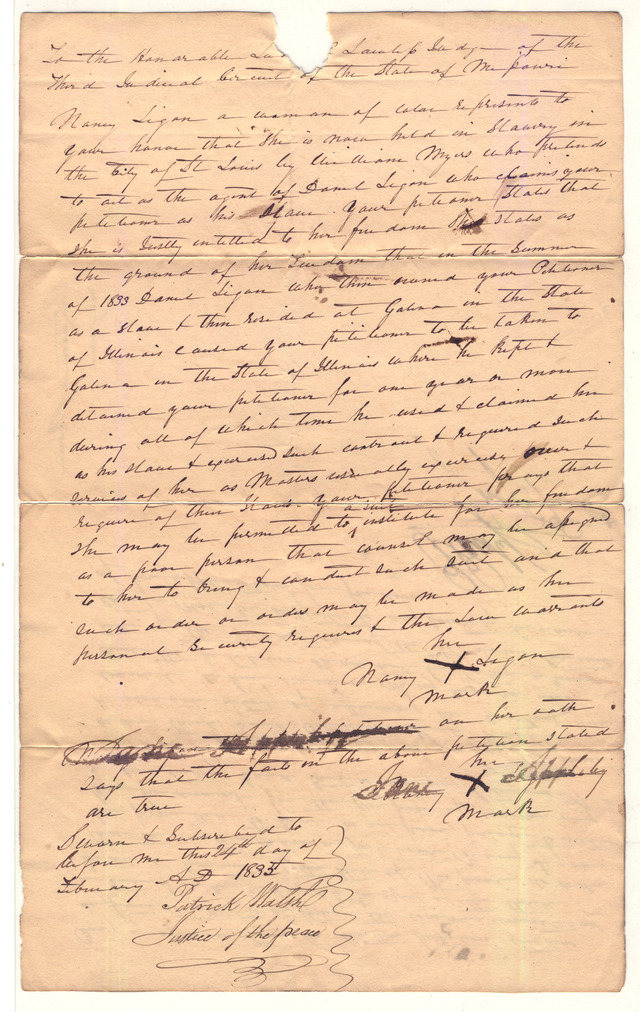 To the Honorable Lu Lawless Judge of the
Third Judicial Circuit of the State of Missouri
Nancy Ligon a woman of color represents to
your honor that she is now held in Slavery in
the City of St Louis by William Myers who pretends
to act as the agent of Daniel Ligon who claims your
petitioner as his Slave. Your petitioner States that
She is Justly intitled to her freedom She States as
the ground of her freedom that in the Summer
of 1833 Daniel Ligon who then owned your Petitioner
as a Slave & then resided at Galena in the State
of Illinois caused your petitioner to be taken to
Galena in the State of Illinois where he kept &
detained your petitioner for one year or more
during all of which time he used & claimed her
as his Slave & exercised such controul & required Such
services of her as Masters usually exercise over &
require of their Slaves. Your Petitioner prays that
She may be permitted to institute a suit for her freedom
as a poor person that counsel may be assigned
to her to bring & conduct such suit and that
such order or orders may be made as her
personal Security requires & the Law warrants
her
Nancy X Ligon
mark
on her oath
says that the facts in the above petition stated
are true
her
X
mark
Sworn & Subscribed to
before me this 24th day of
February AD 1835
Patrick Walsh
Justice of the peace